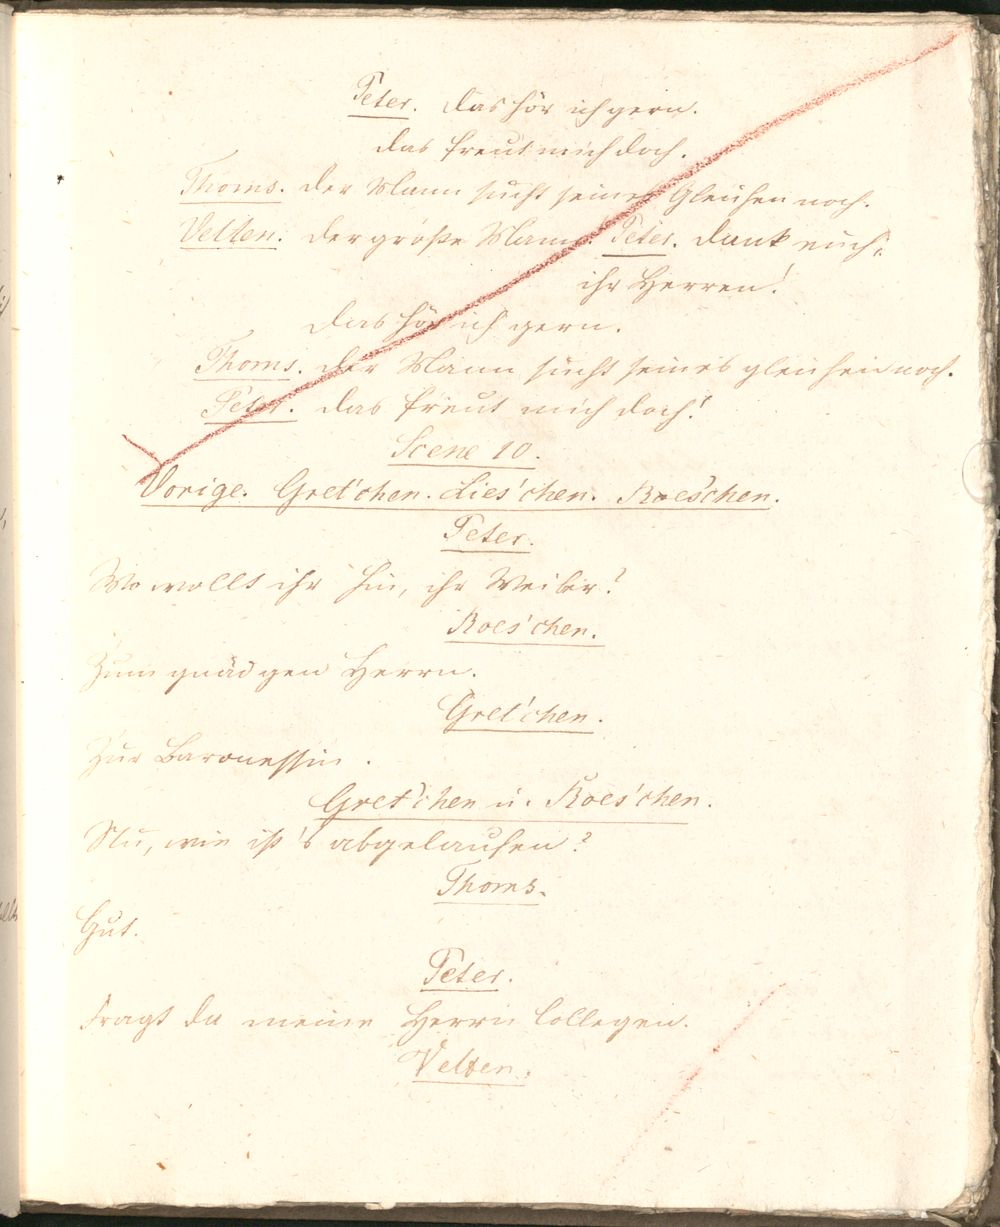 Peter. das hör ich gern.
das freut mich doch.
Thoms. der Mann sucht seines Gleichen noch.
Velten. der große Mann. Peter. dank euch,
ihr Herren!
das hör ich gern.
Thoms. der Mann sucht seines gleichen noch.
Peter. das freut mich doch!
Scene 10.
Vorige. Gret'chen. Lies'chen. Roes'chen.
Peter.
Wo wollt ihr hin, ihr Weiber?
Roes'chen.
Zum gnäd'gen Herrn.
Gret'chen.
Zur Baronessin.
Gret'chen u. Roes'chen.
Nu, wie ist's abgelaufen?
Thoms.
Gut.
Peter.
Fragt da meine Herrn Collegen.
Velten.